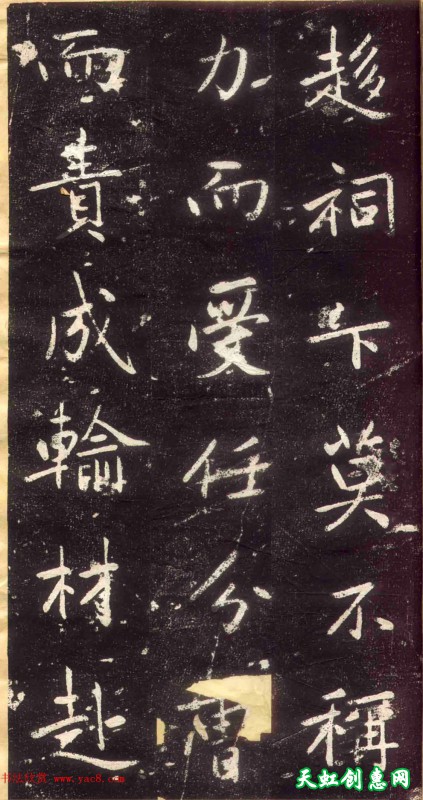 趍祠下莫不稱
力而受任分曹
而責成輪材赴
书法欣赏 www.yac8.com
天虹创惠网